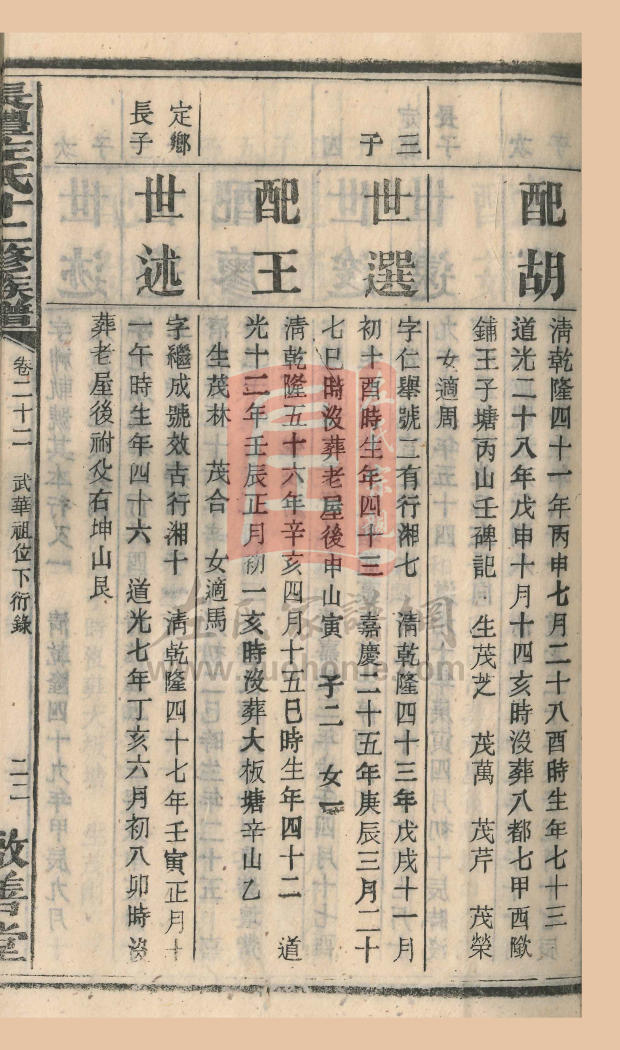 配胡
清乾隆四十一年丙申七月二十八酉時生年七十三
道光二十八年戊申十月十四亥時沒葬八都七甲西墩
鋪王子塘丙山壬碑記 生茂芝 茂萬 茂芹 茂榮
女適周
定三
子
世選
字仁舉號二有行湘七 清乾隆四十三年戊戌十一月
初十酉時生年四十三 嘉慶二十五年庚辰三月二十
七巳時沒葬老屋後申山寅 子二 女一
配王
清乾隆五十六年辛亥四月十五巳時生年四十二 道
光十二年壬辰正月初一亥時沒葬大板塘辛山乙
生茂林 茂合 女適馬
定鄉
長子
世述
字繼成號效古行湘十一 清乾隆四十七年壬寅正月十
一午時生年四十六 道光七年丁亥六月初八卯時沒
葬老屋後祔父右坤山艮
長澧左氏十二修族譜
卷二十二 武華祖位下衍錄
二二
敦善堂
左氏家譜網
www.zuohome.com